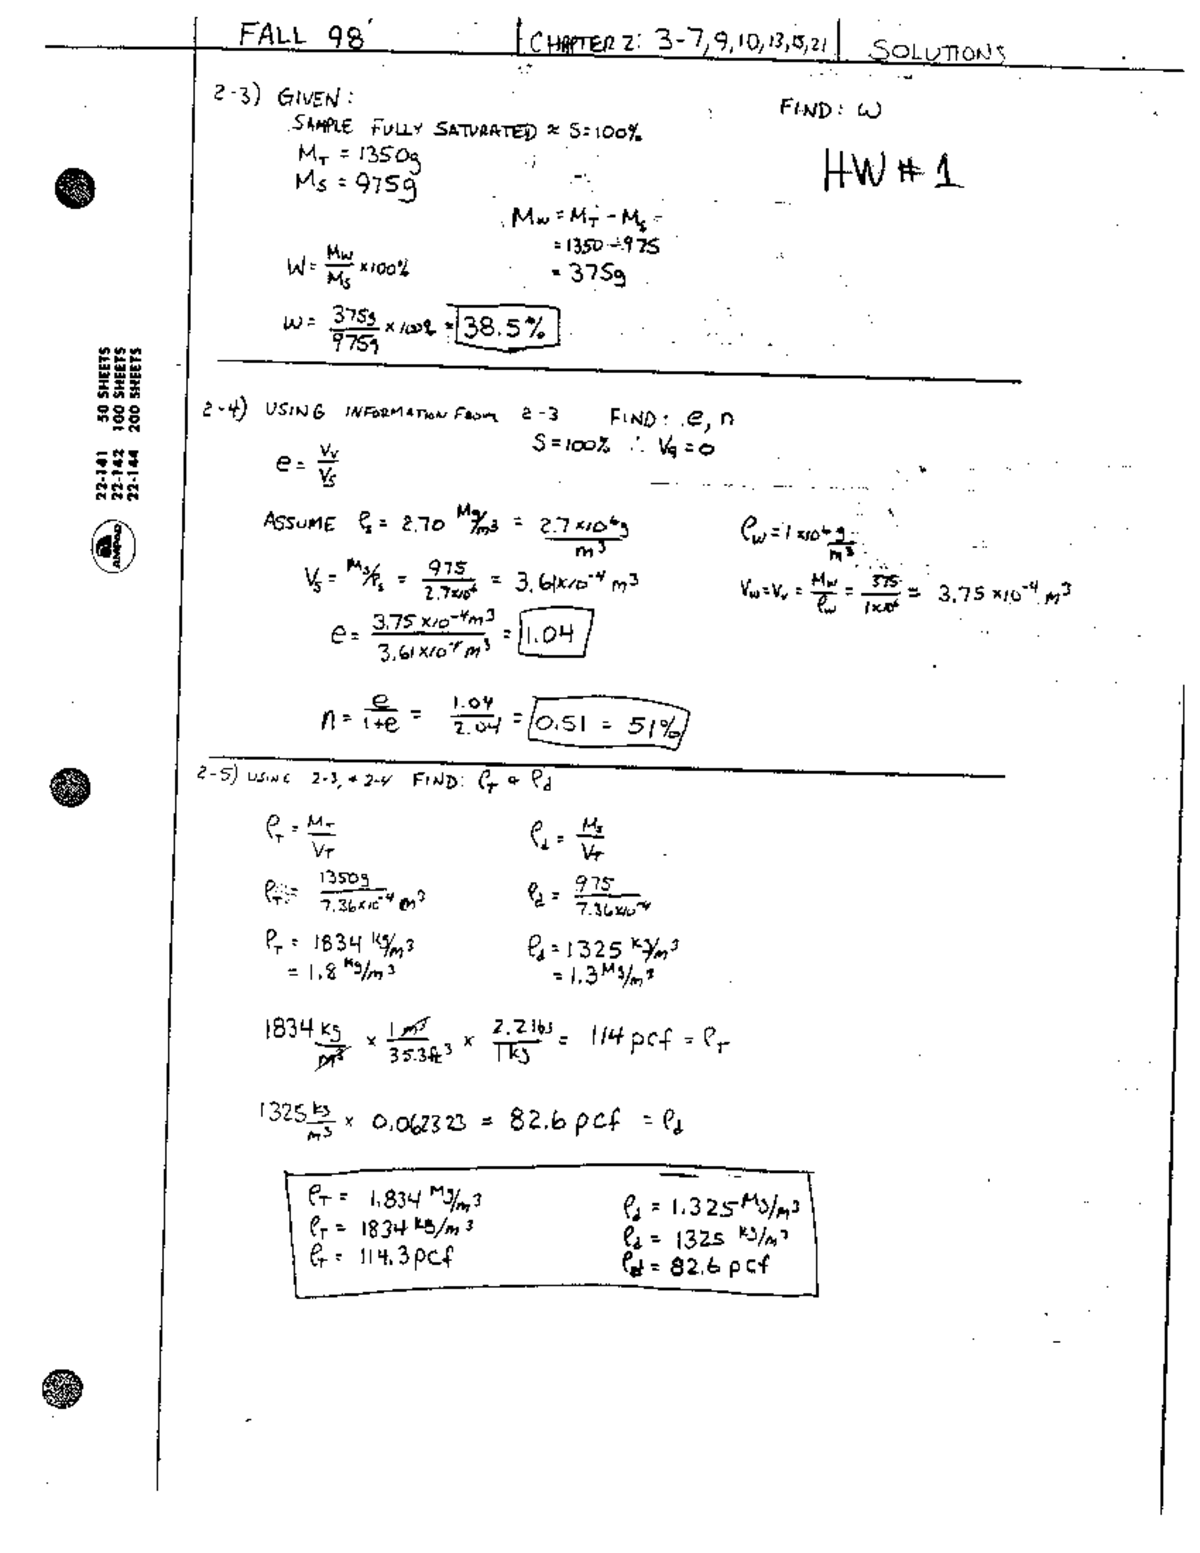 FALL 98' CHAPTER 2: 3-7,9,10,13,15,21 SOLUTIONS
2-3) GIVEN: FIND: W
SAMPLE FULLY SATURATED ≈ S=100%
M_T = 1350g
M_S = 975g
HW # 1
M_w = M_T - M_s =
= 1350 - 975
= 375g
W = M_W/M_S × 100%
W = 375g/975g × 100% = 38.5%
2-4) USING INFORMATION FROM 2-3 FIND: e, n
S=100% ∴ V_g = 0
e = V_V/V_S
ASSUME ρ_s = 2.70 Mg/m³ = 2.7×10⁶g/m³
ρ_w = 1×10⁶ g/m³
V_S = M_S/ρ_s = 975/2.7×10⁶ = 3.61×10⁻⁴ m³
V_w = V_v = M_w/ρ_w = 375/1×10⁶ = 3.75×10⁻⁴ m³
e = 3.75×10⁻⁴m³/3.61×10⁻⁴m³ = 1.04
n = e/1+e = 1.04/2.04 = 0.51 = 51%
2-5) USING 2-3, + 2-4 FIND: ρ_T & ρ_d
ρ_T = M_T/V_T ρ_d = M_S/V_T
ρ_T = 1350g/7.36×10⁻⁴ m³ ρ_d = 975/7.36×10⁻⁴
ρ_T = 1834 kg/m³ ρ_d = 1325 kg/m³
= 1.8 kg/m³ = 1.3 Mg/m³
1834 kg/m³ × 1m³/35.3ft³ × 2.2lbs/1kg = 114 pcf = ρ_T
1325 kg/m³ × 0.062323 = 82.6 pcf = ρ_d
ρ_T = 1.834 Mg/m³ ρ_d = 1.325 Mg/m³
ρ_T = 1834 kg/m³ ρ_d = 1325 kg/m³
ρ_T = 114.3 pcf ρ_d = 82.6 pcf
22-141 50 SHEETS
22-142 100 SHEETS
22-144 200 SHEETS
AMPAD